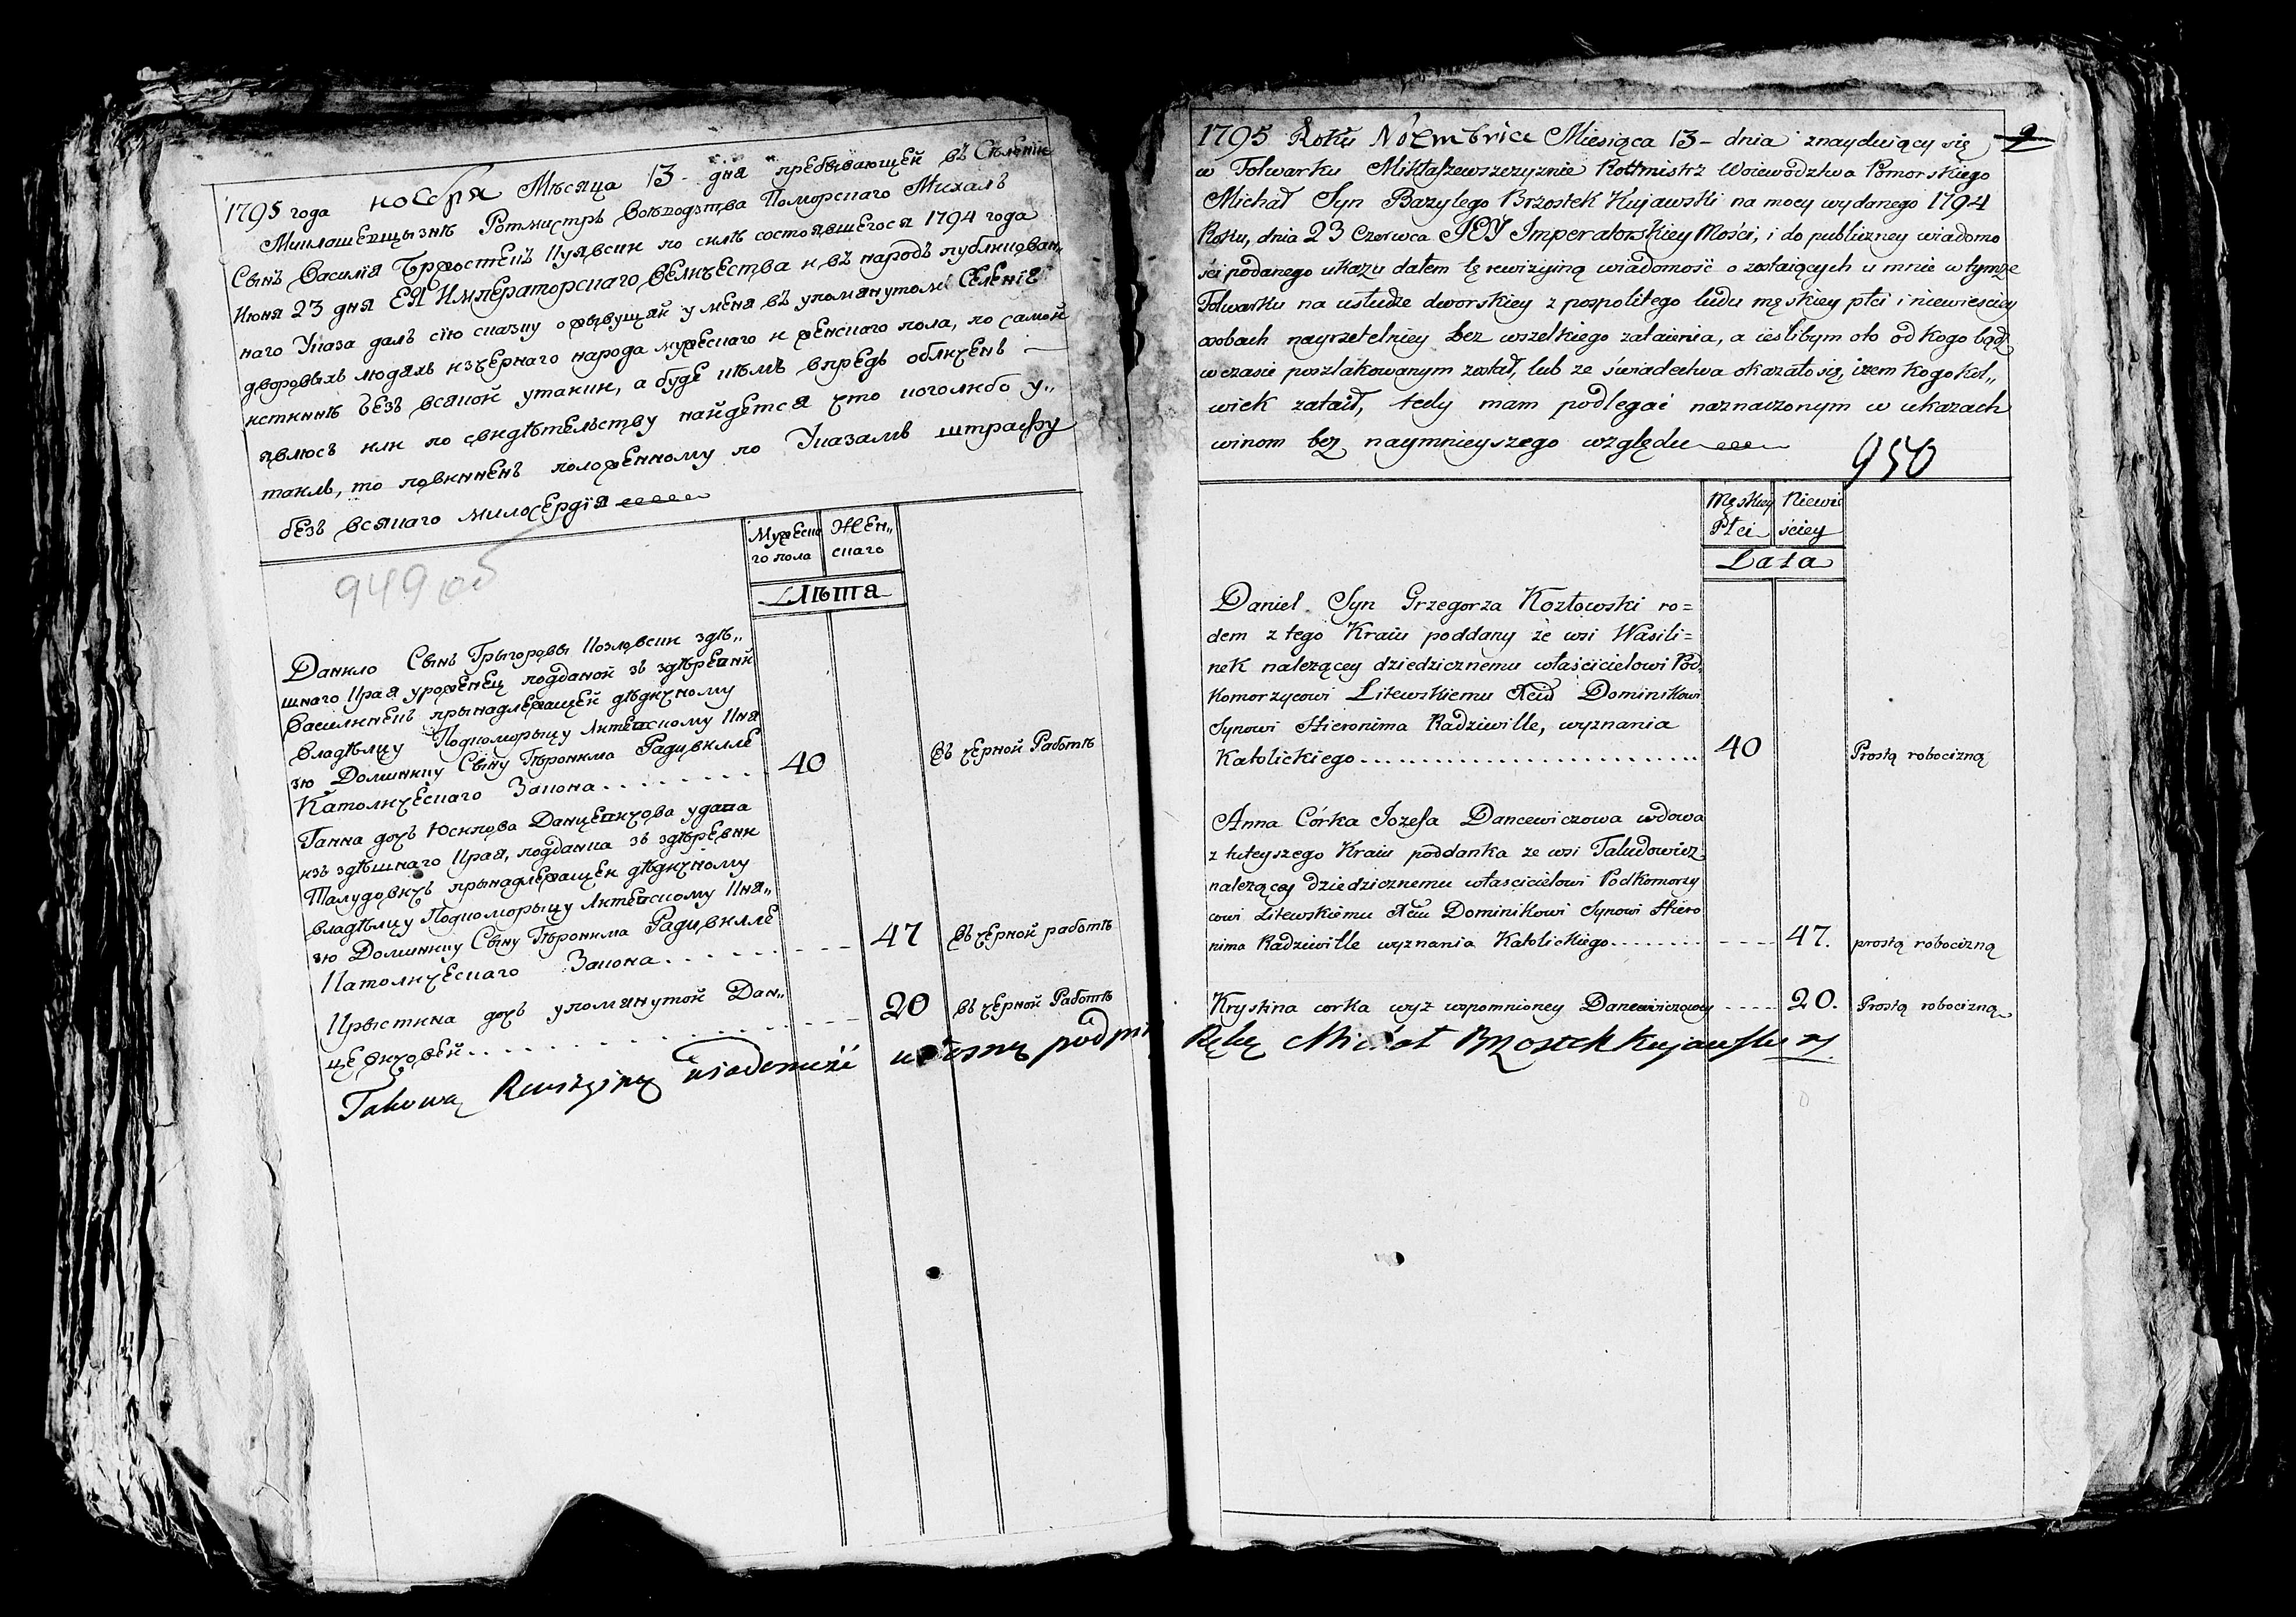 1795 года ноября Мѣсяца 13 - дня пребывающей въ Селении
Миклошевщызнѣ Ротмистръ Воеводзтва Поморскаго Михалъ
Сынъ Василїя Бржостекъ Куявски по силѣ состоявшегося 1794 года
Июня 23 дня ЕЯ Императорскаго Величества и въ народъ публикован„
наго Указа далъ сїю сказку о живущей у меня въ упомянутомъ Селенїе
дворовыхъ людяхъ изчернаго народа мужескаго и женскаго пола, по самой
истиннѣ безъ всякой утайки, а буде кѣмъ впредь обличенъ
явлюсъ или по свидѣтельству найдется что коголибо у„
таилъ, то повиненъ положенному по Указамъ штрафу
безъ всякаго милосердїя
949 об
Мужеска
го пола
Жен„
скаго
Лѣта
Данило Сынъ Грыгоровы Козловски здѣ„
шнаго Края уроженец подданой зъ здѣревни
Василинекъ прынадлежащей дѣдичному
Владѣлцу Подкоморыцу Литевскому Кня
зю Доминику Сыну Гѣронима Радивилле
Католическаго Закона . . . . . . . 40 въ черной Работѣ
Ганна дочъ Юсипова Данцевичова удава
изъ здѣшнаго Края, подданка зъ здѣревни
Талудовичъ прынадлежащей дѣдичному
владѣлцу Подкоморыцу Литевскому Кня„
зю Доминику Сыну Гѣронима Радивилле
Католическаго Закона . . . . . . 47 въ черной работѣ
Крыстина дочъ упомянутой Дан„
цевичовей . . . . . . . 20 въ черной Работѣ
Takową Rewizyiną wiadomość własną podpis
1795 Roku Nóembrice Miesiąca 13 - dnia znayduiący się
w Folwarku Mikłaszewszczyznie Rottmistrz Woiewództwa Pomorskiego
Michał Syn Bazylego Brzostek Kujawski na mocy wydanego 1794
Roku, dnia 23 Czerwca JEY Imperatorskiey Mości, i do publiczney wiadomo
ści podanego ukazu dałem tę rewizyiną wiadomość o zostaiących u mnie w tymże
Folwarku na usłudze dworskiey z pospolitego ludu męskiey płci i niewiesciey
osobach nayrzetelniey bez wszelkiego zataienia, a ieślibym oto od kogo bądź
w czasie poszlakowanym został, lub ze świadectwa okazało się, iżem kogokol„
wiek zataił, tedy mam podlegać naznaczonym w ukazach
winom bez naymnieyszego względu
9
950
Męskiey
Płci
Niewie
ściey
Lata
Daniel Syn Grzegorza Kozłowski ro=
dem z tego Kraiu poddany ze wsi Wasili=
nek należącey dziedzicznemu właścicielowi Pod„
komorzycowi Litewskiemu Xciu Dominikowi
Synowi Hieronima Radziwille, wyznania
Katolickiego . . . . . . . . . . . . 40 Prostą robocizną
Anna Córka Jozefa Dancewiczowa wdowa
z tuteyszego Kraiu poddanka ze wsi Taludowicz
należącey dziedzicznemu własciciełowi Podkomorzy
cowi Litewskiemu Xciu Dominikowi Synowi Hiero
nima Radziwille wyznania Katolickiego . . . . . . 47. prostą robocizną
Krystina corka wyż wspomnioney Dancewiczowey - - - - 20. Prostą robocizną
Ręką Michał Brzostek Kujawski